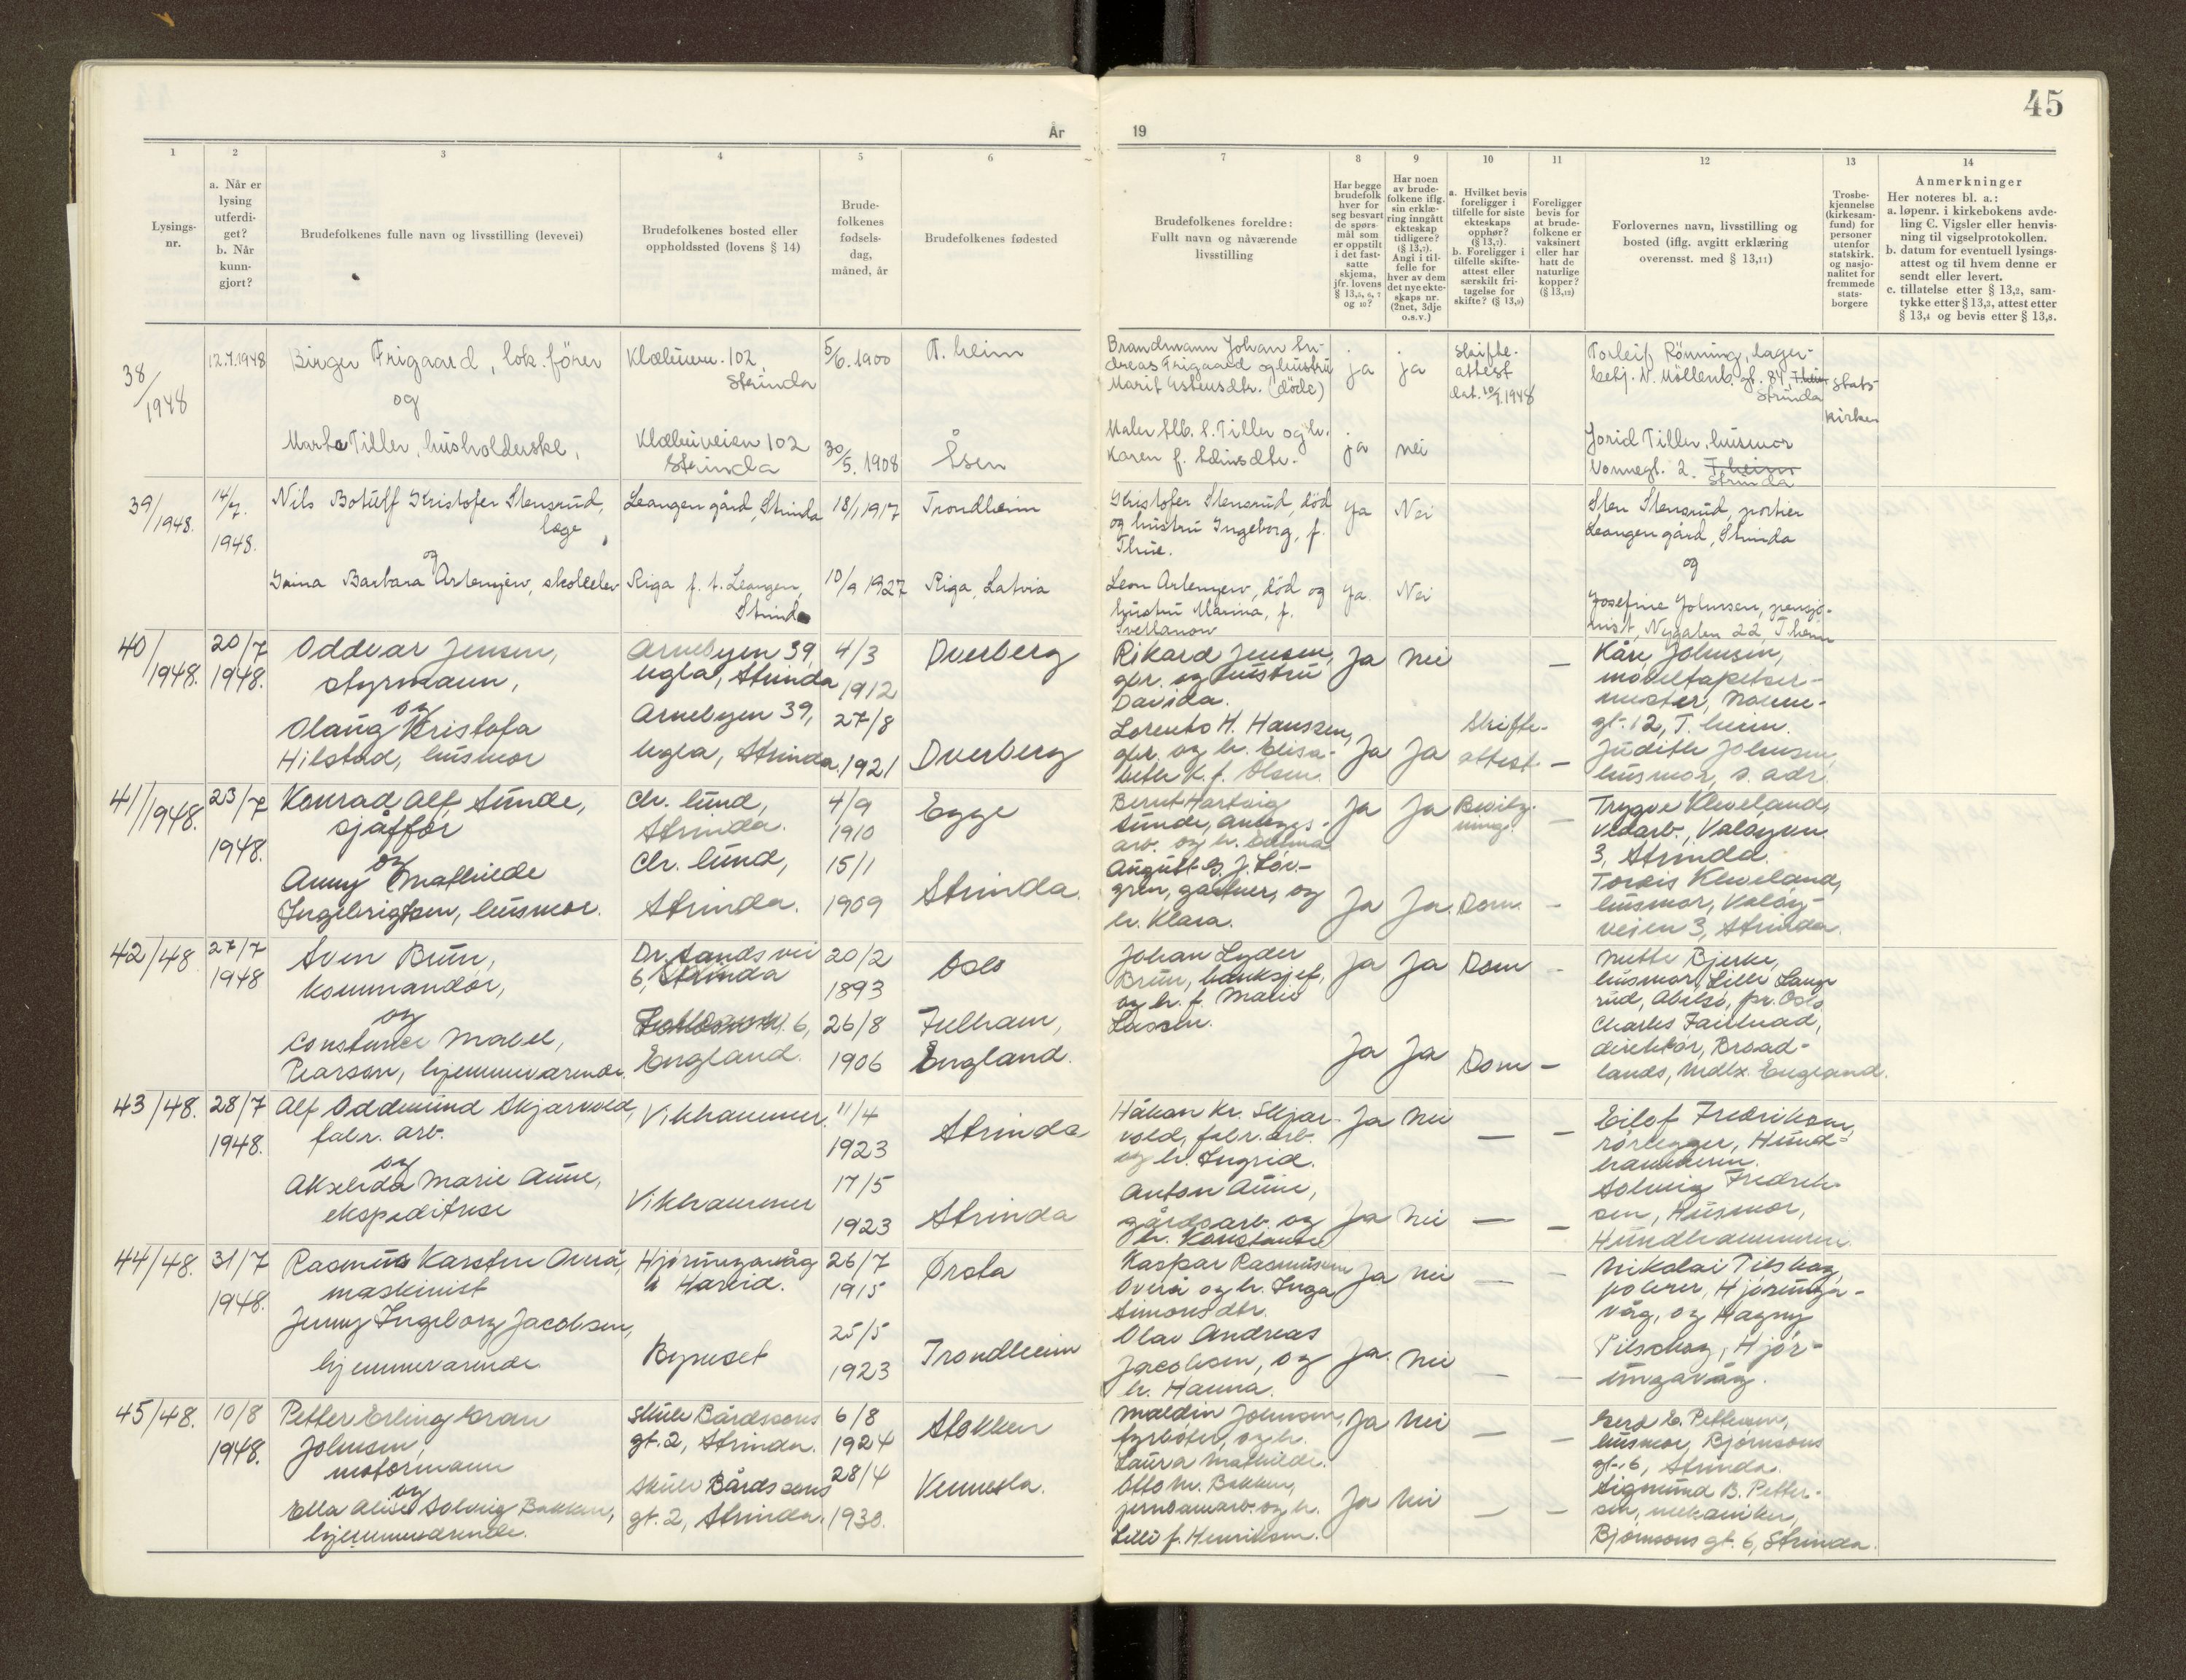 45
År
19
1
2
3
4
5
6
7
8
9
10
11
12
13
14
Lysings-
nr.
a. Når er
lysing
utferdi-
get?
b. Når
kunn-
gjort?
Brudefolkenes fulle navn og livsstilling (levevei)
Brudefolkenes bosted eller
oppholdssted (lovens § 14)
Brude-
folkenes
fødsels-
dag,
måned, år
Brudefolkenes fødested
Brudefolkenes foreldre:
Fullt navn og nåværende
livsstilling
Har begge
brudefolk
hver for
seg besvart
de spørs-
mål som
er oppstilt
i det fast-
satte
skjema,
jfr. lovens
§ 13,5, 6, 7
og 10?
Har noen
av brude-
folkene iflg.
sin erklæ-
ring inngått
ekteskap
tidligere?
(§ 13,7).
Angi i til-
felle for
hver av dem
det nye ekte-
skaps nr.
(2net, 3dje
o.s.v.)
a. Hvilket bevis
foreligger i
tilfelle for siste
ekteskaps
opphør?
(§ 13,7).
b. Foreligger i
tilfelle skifte-
attest eller
særskilt fri-
tagelse for
skifte? (§ 13,9)
Foreligger
bevis for
at brude-
folkene er
vaksinert
eller har
hatt de
naturlige
kopper?
(§ 13,12)
Forlovernes navn, livsstilling og
bosted (iflg. avgitt erklæring
overensst. med § 13,11)
Trosbe-
kjennelse
(kirkesam-
fund) for
personer
utenfor
statskirk.
og nasjo-
nalitet for
fremmede
stats-
borgere
Anmerkninger
Her noteres bl. a.:
a. løpenr. i kirkebokens avde-
ling C. Vigsler eller henvis-
ning til vigselprotokollen.
b. datum for eventuell lysings-
attest og til hvem denne er
sendt eller levert.
c. tillatelse etter § 13,2, sam-
tykke etter § 13,3, attest etter
§ 13,4 og bevis etter § 13,8.
38/1948
12.7.1948
Birger Frigaard, lok.fører
og
Marta Tiller, husholderske,
Klæbuvn. 102,
Strinda
Klæbuveien 102
Strinda
5/6. 1900
30/5. 1908
T.heim
Åsen
Brandmann Johan An-
dreas Frigaard og hustru
Marit Estensdtr. (døde)
Maler Alb. S. Tiller og h.
Karen f.
ja
ja
ja
nei
skifte-
attest
dat. 10/7.1948
Torleif Rönning, lager-
betj. N. Möllenb. gt. 84, T.heim
Strinda
Jorid Tiller, husmor
Vonnegt. 2. T.heim
Strinda
stats-
kirken
39/1948.
14/7.
1948.
Nils Botulf Kristofer Stensrud,
læge
og
Irina Barbara Artemjew, skoleelev
Leangen gård, Strinda
Riga f. t. Leangen,
Strinda
18/1 1917
10/9 1927
Trondheim
Riga, Latvia
Kristofer Stensrud, död
og hustru Ingeborg, f.
Thue.
Leon Artemjew, död og
hustru Marina, f.
Svetlanow
Ja
Nei
Ja
Nei
Sten Stensrud, portier
Leangen gård, Strinda
og
Josefine Johnsen, pensjo-
nist, Nygaten 22, T.heim
40/1948.
20/7
1948.
Oddvar Jensen,
styrmann,
og
Olaug Kristofa
Hilstad, husmor
Arnebyen 39,
Ugla, Strinda
Arnebyen 39,
Ugla, Strinda.
4/3
1912
27/8
1921
Dverberg
Dverberg
Rikard Jensen,
gbr. og hustru
Davida.
Lorents H. Hanssen,
gbr. og h. Elisa-
beth K. f. Olsen.
Ja
nei
Ja
Ja
Skifte-
attest
—
—
Kåre Johnsen,
møbeltapetser-
mester, Nonne-
gt. 12, T.heim.
Judith Johnsen,
husmor, s. adr.
41/1948.
23/7
1948.
Konrad Alf Sunde,
sjåffør
og
Anny Mathilde
Ingebrigtsen, husmor.
Chr. lund,
Strinda.
Chr. lund,
Strinda.
4/9
1910
15/1
1909
Egge
Strinda.
Bernt Hartvig
Sunde, anleggs-
arb. og h. Edina
August G. J. Løv-
gren, gartner, og
h. Klara.
Ja
Ja
Ja
Ja.
Bevilg-
ning.
Dom.
—
-
Trygve Kleveland,
vedarb., Valøyvn.
3, Strinda.
Tordis Kleveland,
husmor, Valøy-
veien 3, Strinda.
42/48
27/7
1948
Sven Brun,
kommandør,
og
Constance Mabel,
Pearson, hjemmeværende.
Dr. Sands vei
6, Strinda
6,
England.
20/2
1893
26/8
1906
Oslo
Fulham,
England.
Johan Lyder
Brun, banksjef,
og h. f. Marie
Lassen.
Ja
Ja
Ja
Ja
Dom
Dom
-
-
Mette Bjerke,
husmor, Lille Lange-
rud, Abilsø, pr. Oslo
Charles
direktør, Broad-
lands, Mdlx. England.
43/48.
28/7
1948.
Alf Oddmund Skjærvold,
fabr. arb.
og
Akselida Marie Aune,
ekspeditrise
Vikhammer.
Vikhammer
11/4
1923
17/5
1923
Strinda
Strinda
Håkon Kr. Skjær-
vold, fabr.arb.
og h. Ingrid.
Anton Aune,
gårdsarb. og
h. Konstanse
Ja
nei
Ja
nei
—
—
—
—
Eilof Fredriksen,
rørlegger, Hund-
hammeren.
Solveig Fredrik-
sen, Husmor,
Hundhammeren.
44/48.
31/7
1948.
Rasmus Karsten Overå,
maskinist
Jenny Ingeborg Jacobsen,
hjemmeværende
Hjørungavåg
i Hareid.
Byneset
26/7
1915
25/5
1923
Ørsta
Trondheim
Kaspar Rasmussen
Overå og h. Inga
Simonsdtr.
Olav Andreas
Jacobsen, og
h. Hanna.
Ja
nei
Ja
nei
—
—
—
—
Nikolai Pilskog,
polerer, Hjørunga-
våg, og Magny
Pilskog, Hjør-
ungavåg.
45/48.
10/8
1948.
Petter Erling Gran
Johnsen,
motormann
og
Ella Alise Solveig Bakken,
hjemmeværende.
Skule Bårdssons
gt. 2, Strinda.
Skule Bårdssons
gt. 2, Strinda.
6/8
1924
28/4
1930.
Stokken
Vennesla.
Maldin Johnsen,
fyrbøter, og h.
Laura Mathilde.
Otto M. Bakken,
jernbanearb. og h.
Lilli f. Henriksen.
Ja
nei
Ja
nei
—
—
—
—
Gerd E. Pettersen,
husmor, Bjørnsons
gt. 6, Strinda.
Sigmund B. Petter-
sen, mekaniker,
Bjørnsons gt. 6, Strinda.